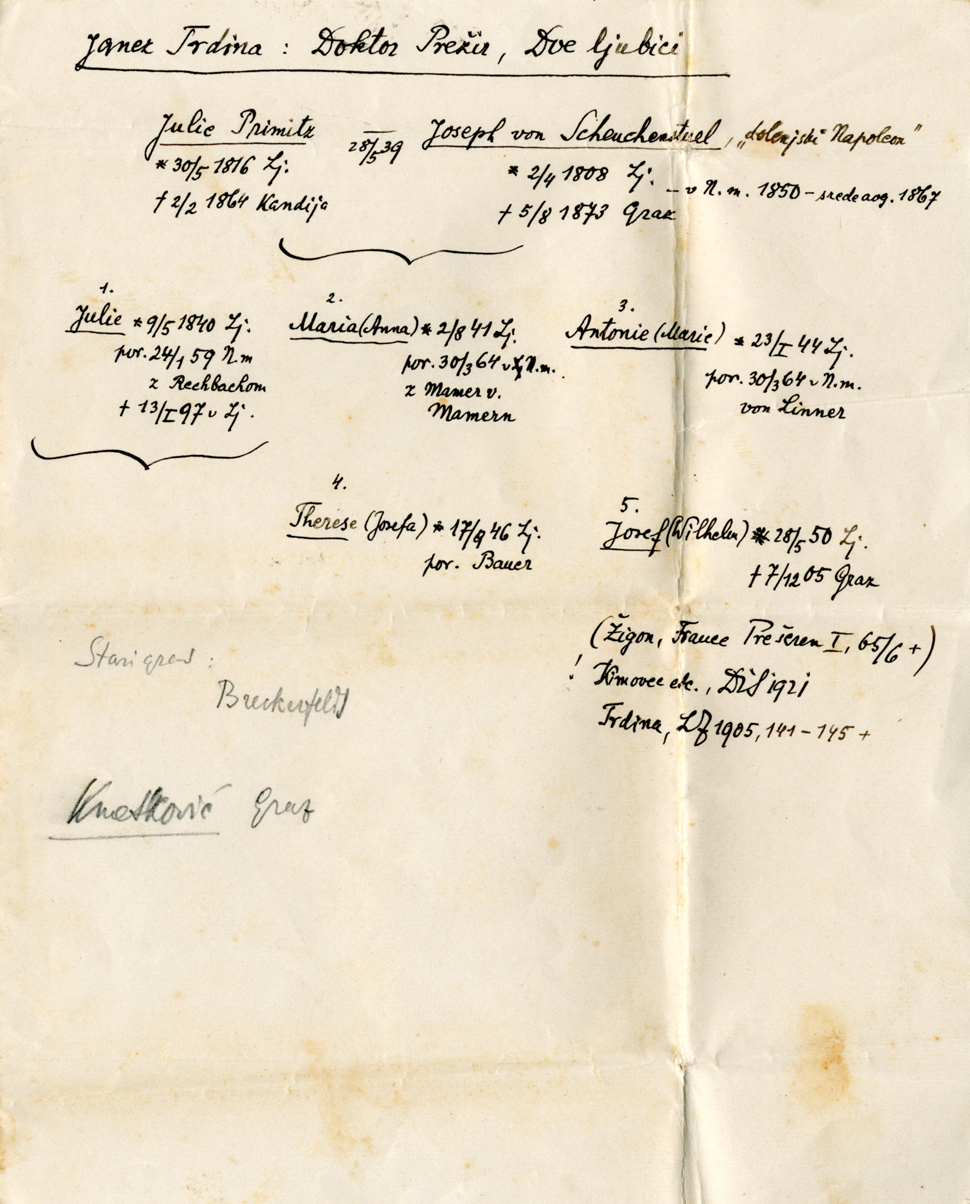 Janez Trdina : Doktor Prežir, Dve ljubici
Julie Primitz 28/5 39 Joseph von Scheuchenstuel, „dolenjski Napoleon"
* 30/5 1816 Lj. * 2/4 1808 Lj. – v N. m. 1850 – srede avg. 1867
† 2/2 1864 Kandija † 5/8 1873 Graz
1. 2. 3.
Julie * 9/5 1840 Lj. Maria (Anna) * 2/8 41 Lj. Antonie (Marie) * 23/I 44 Lj.
por. 24/1 59 N. m por. 30/3 64 v N. m. por. 30/3 64 v N. m.
z Rechbachom z Mamer v. von Linner
† 13/I 97 v Lj. Mamern
4. 5.
Therese (Josefa) * 17/9 46 Lj. Josef (Wilhelm) * 28/5 50 Lj.
por. Bauer † 7/12 05 Graz
(Žigon, France Prešeren I, 65/6 +)
! Kimovec etc., DiS 1921
Trdina, LZ 1905, 141 – 145 +
Stari grad :
Breckerfeld
Graz